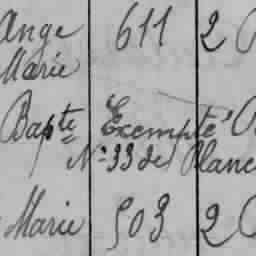 Ange 611 2
Marie
Bapte Exempté
N° 33 de Planc
Marie 503 2